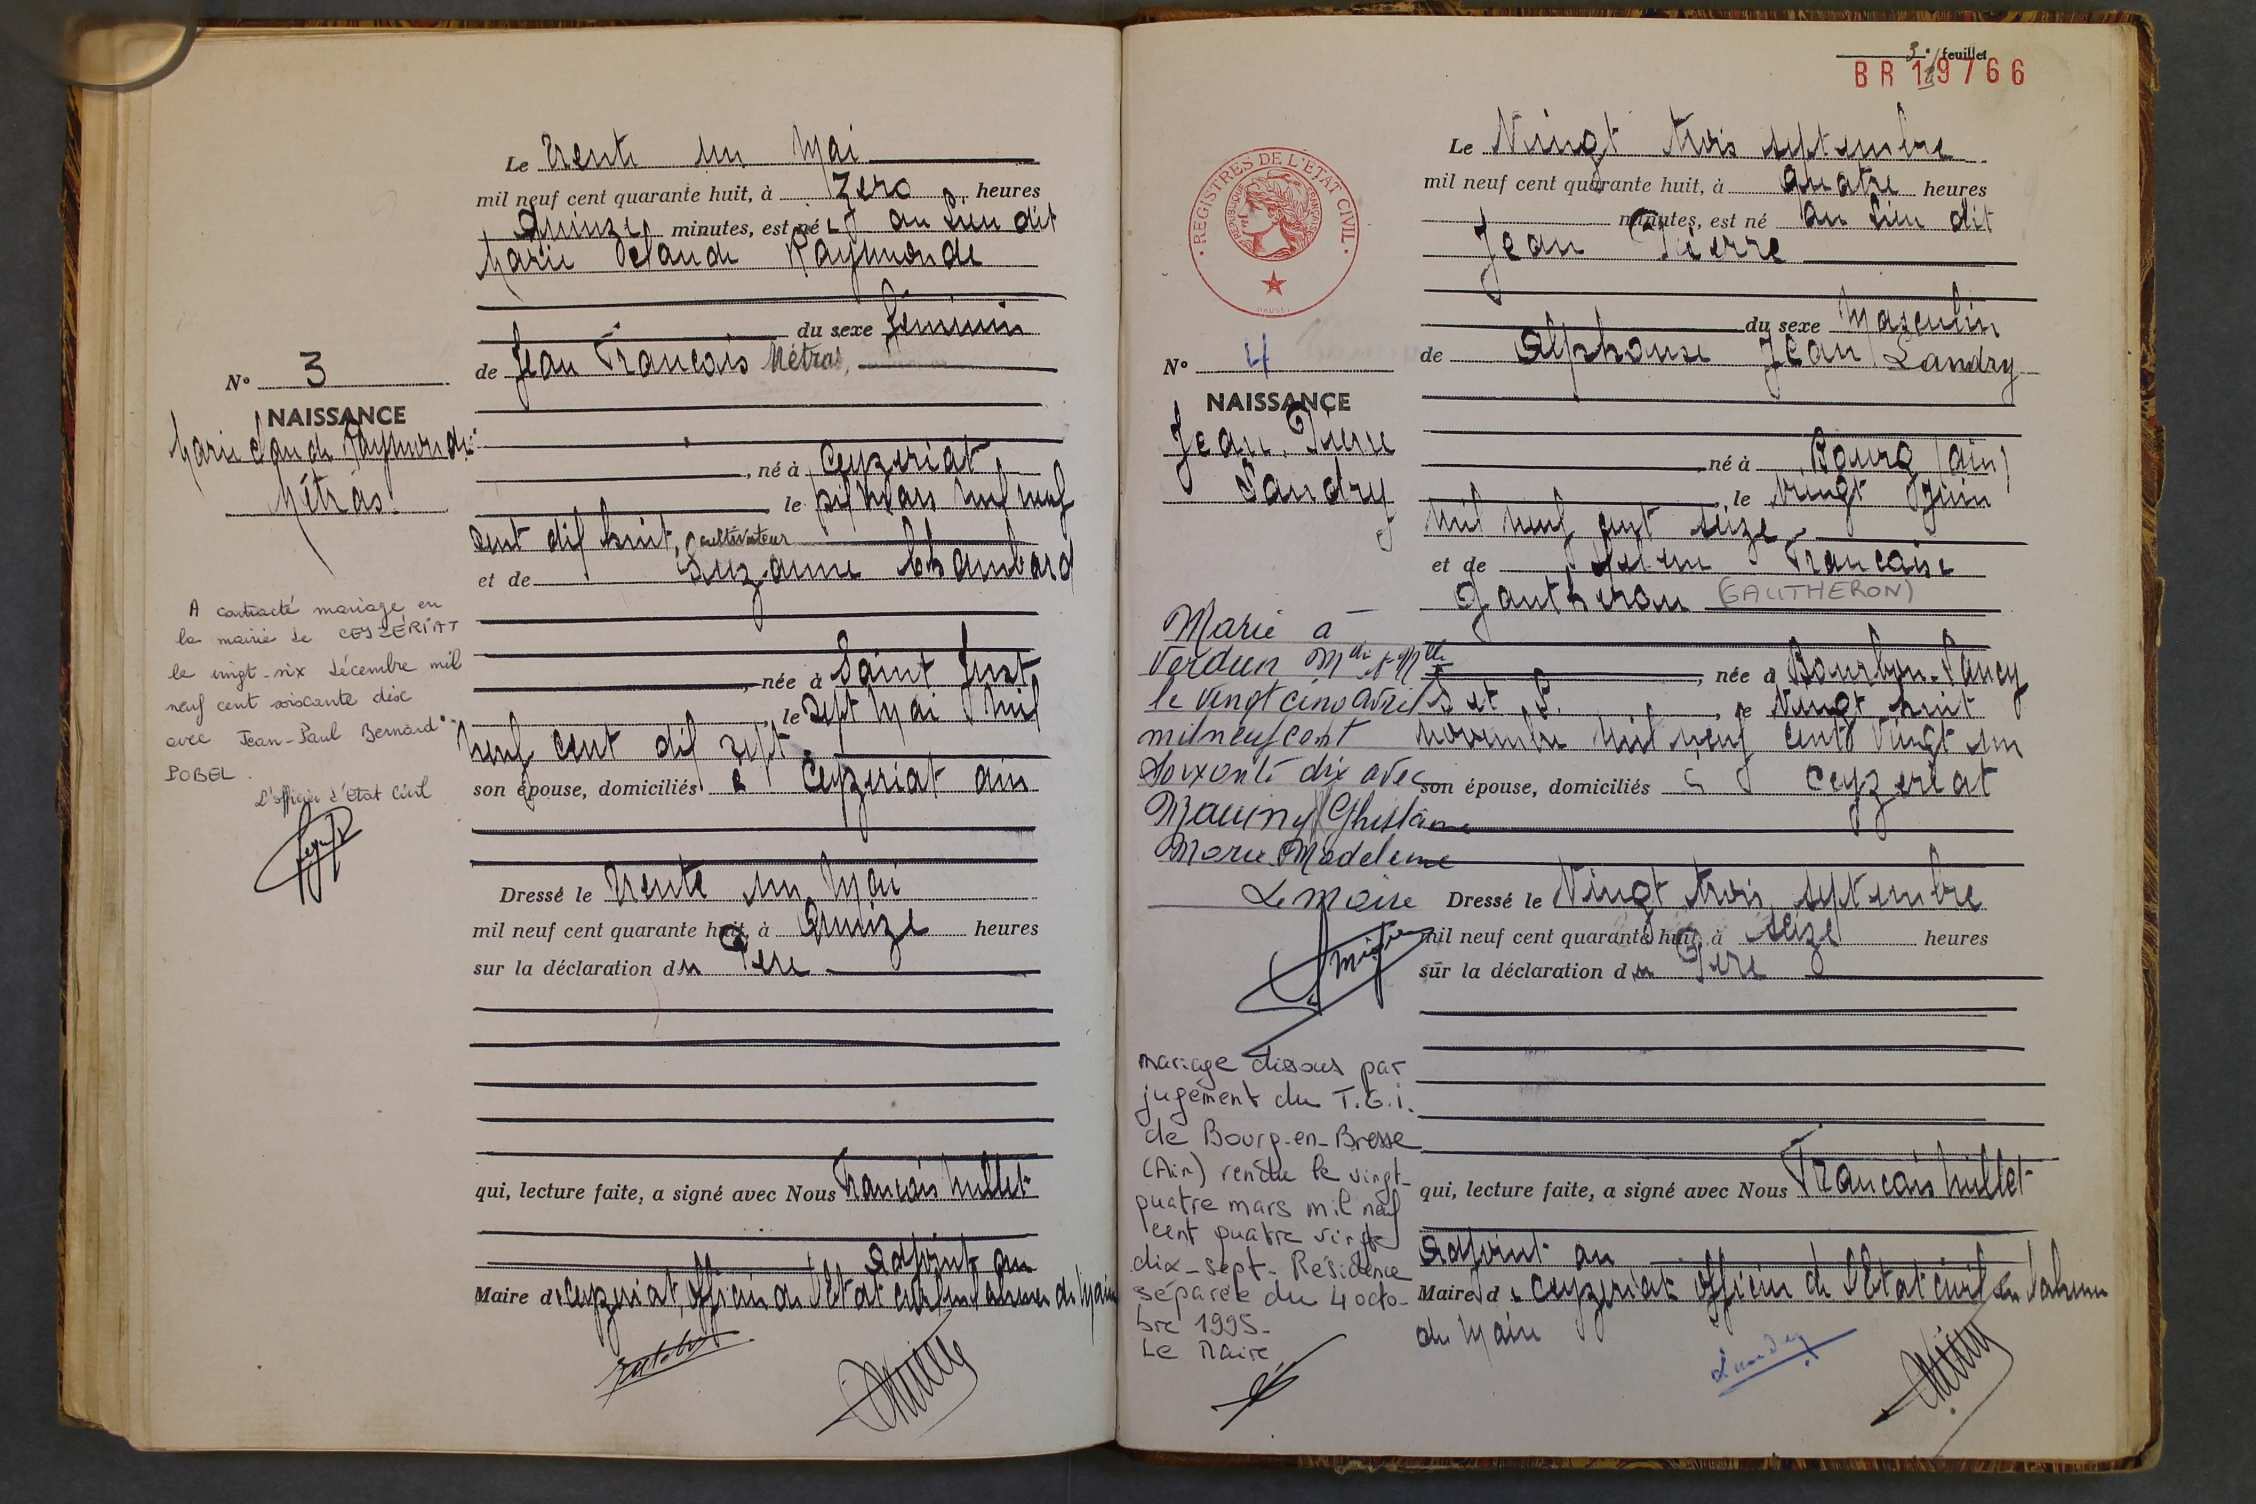 Le Trente un Mai
mil neuf cent quarante huit, à Zero heures
Quinze minutes, est né e au lieu dit
Marie Claude Raymonde
du sexe féminin
de Jean François Métras,
N° 3
NAISSANCE
Marie Claude Raymonde
Métras
, né à Ceyzeriat
le dix Mars mil neuf
cent dix huit, cultivateur
et de Suzanne Chambard
A contracté mariage en
la mairie de CEYZERIAT
le vingt-six décembre mil
neuf cent soixante dix
avec Jean-Paul Bernard
POBEL.
L'officier d'Etat Civil
, née à Saint Just
, le sept Mai Mil
neuf cent dix sept
son épouse, domiciliés à Ceyzeriat ain
Dressé le Trente un Mai
mil neuf cent quarante huit, à Quinze heures
sur la déclaration du Père
qui, lecture faite, a signé avec Nous François Millet
adjoint au
Maire de Ceyzeriat, officier de l'Etat civil en l'absence du Maire
3e feuillet
BR 119766
REGISTRES DE L'ETAT CIVIL
REPUBLIQUE FRANÇAISE
Le Vingt trois septembre
mil neuf cent quarante huit, à quatre heures
minutes, est né au lieu dit
Jean Pierre
du sexe Masculin
de Alphonse Jean Landry
N° 4
NAISSANCE
Jean Pierre
Landry
né à Bourg (ain)
, le Vingt Juin
Mil neuf cent seize
et de Française
Gautheron (GAUTHERON)
, née à Bourbon-Lancy
S et L. , le Vingt huit
novembre Mil neuf cent Vingt un
son épouse, domiciliés à Ceyzeriat
Marié à
Verdun
le vingt cinq avril
mil neuf cent
soixante dix avec
Mauiny Ghislaine
Marie Madeleine
Le Maire
Dressé le Vingt trois septembre
mil neuf cent quarante huit, à seize heures
sur la déclaration du Père
mariage dissous par
jugement du T.G.I.
de Bourg-en-Bresse
(Ain) rendu le vingt-
quatre mars mil neuf
cent quatre vingt
dix-sept. Résidence
séparée du 4 octo-
bre 1995.
Le Maire,
qui, lecture faite, a signé avec Nous François Millet
adjoint au
Maire de Ceyzeriat officier de l'Etat civil en l'absence
du Maire
Landry